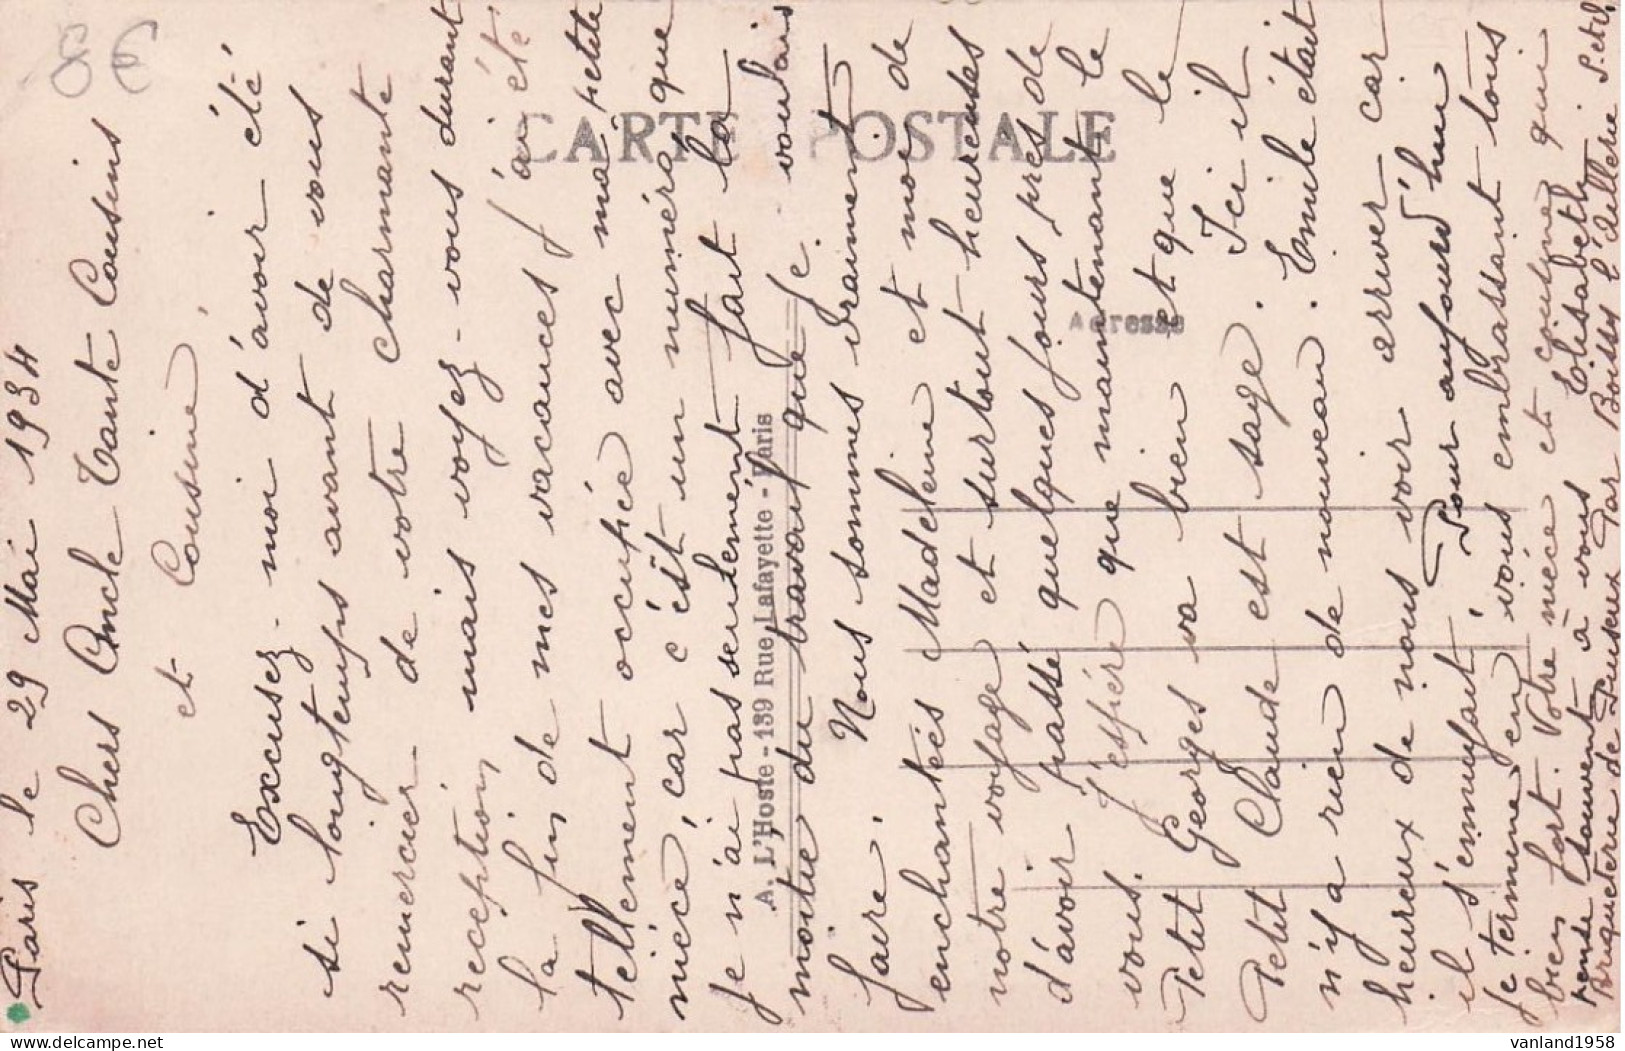 8 €
Paris le 29 Mai 1934
Chers Oncle Tante Cousins
et Cousine,
Excusez-moi d'avoir été
si longtemps avant de vous
remercier de votre charmante
réception, mais voyez-vous durant
la fin de mes vacances j'ai été
tellement occupée avec ma petite
nièce, car c'est un numéro que
je n'ai pas seulement fait la
moitié du travail que je voulais
faire. Nous sommes vraiment
enchantés Madeleine et moi de
notre voyage et surtout heureuses
d'avoir passé quelques jours près de
vous. J'espère que maintenant le
Petit Georges va bien et que le
Petit Claude est sage. Ici il
n'y a rien de nouveau. Emile était
heureux de nous voir arriver car
il s'ennuyait. Pour aujourd'hui
je termine en vous embrassant tous
bien fort. Votre nièce et cousine qui
pense souvent à vous Elisabeth
Briqueterie de Puiseux Par Boissy l'aillerie S.et.O.
CARTE POSTALE
Adresse
A. L'Hoste - 139 Rue Lafayette - Paris
delcampe.net
vanland1958